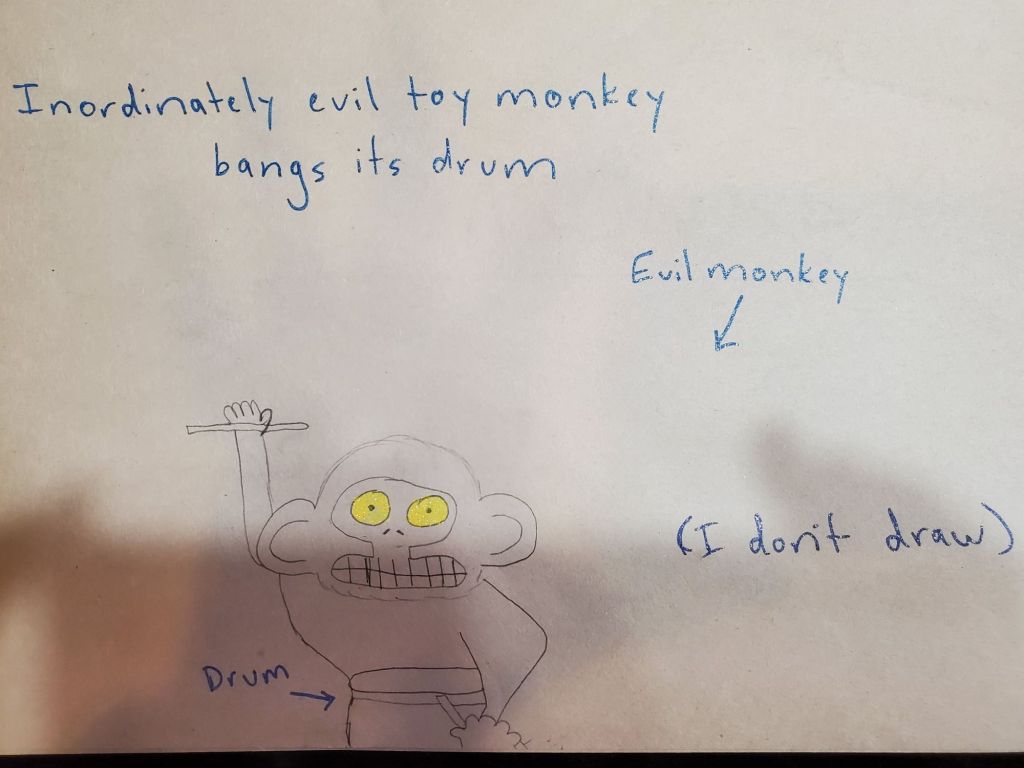 Inordinately evil toy monkey
bangs its drum
Evil monkey
(I don't draw)
Drum